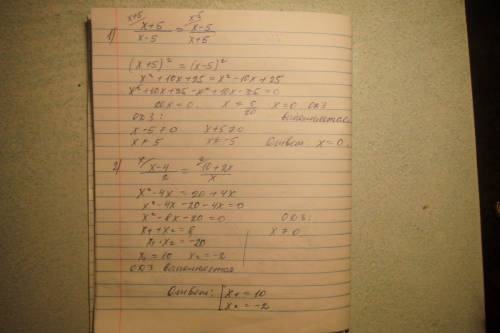 1) x+5/ x+5 / x-5 = x-5/ x-5 / x+5
(x+5)² = (x-5)²
x² + 10x + 25 = x² - 10x + 25
x² + 10x + 25 - x² + 10x - 25 = 0
20x = 0. x = 0/20 x = 0 ОДЗ
ОДЗ: выполняется.
x - 5 ≠ 0 x + 5 ≠ 0
x ≠ 5 x ≠ -5 Ответ x = 0.
2) x/ x-4 / 2 = 2/ 10+2x / x
x² - 4x = 20 + 4x
x² - 4x - 20 - 4x = 0
x² - 8x - 20 = 0 ОДЗ:
x₁ + x₂ = 8 x ≠ 0
x₁ · x₂ = -20
x₁ = 10 x₂ = -2
ОДЗ выполняется
Ответ: [ x₁ = 10
x₂ = -2